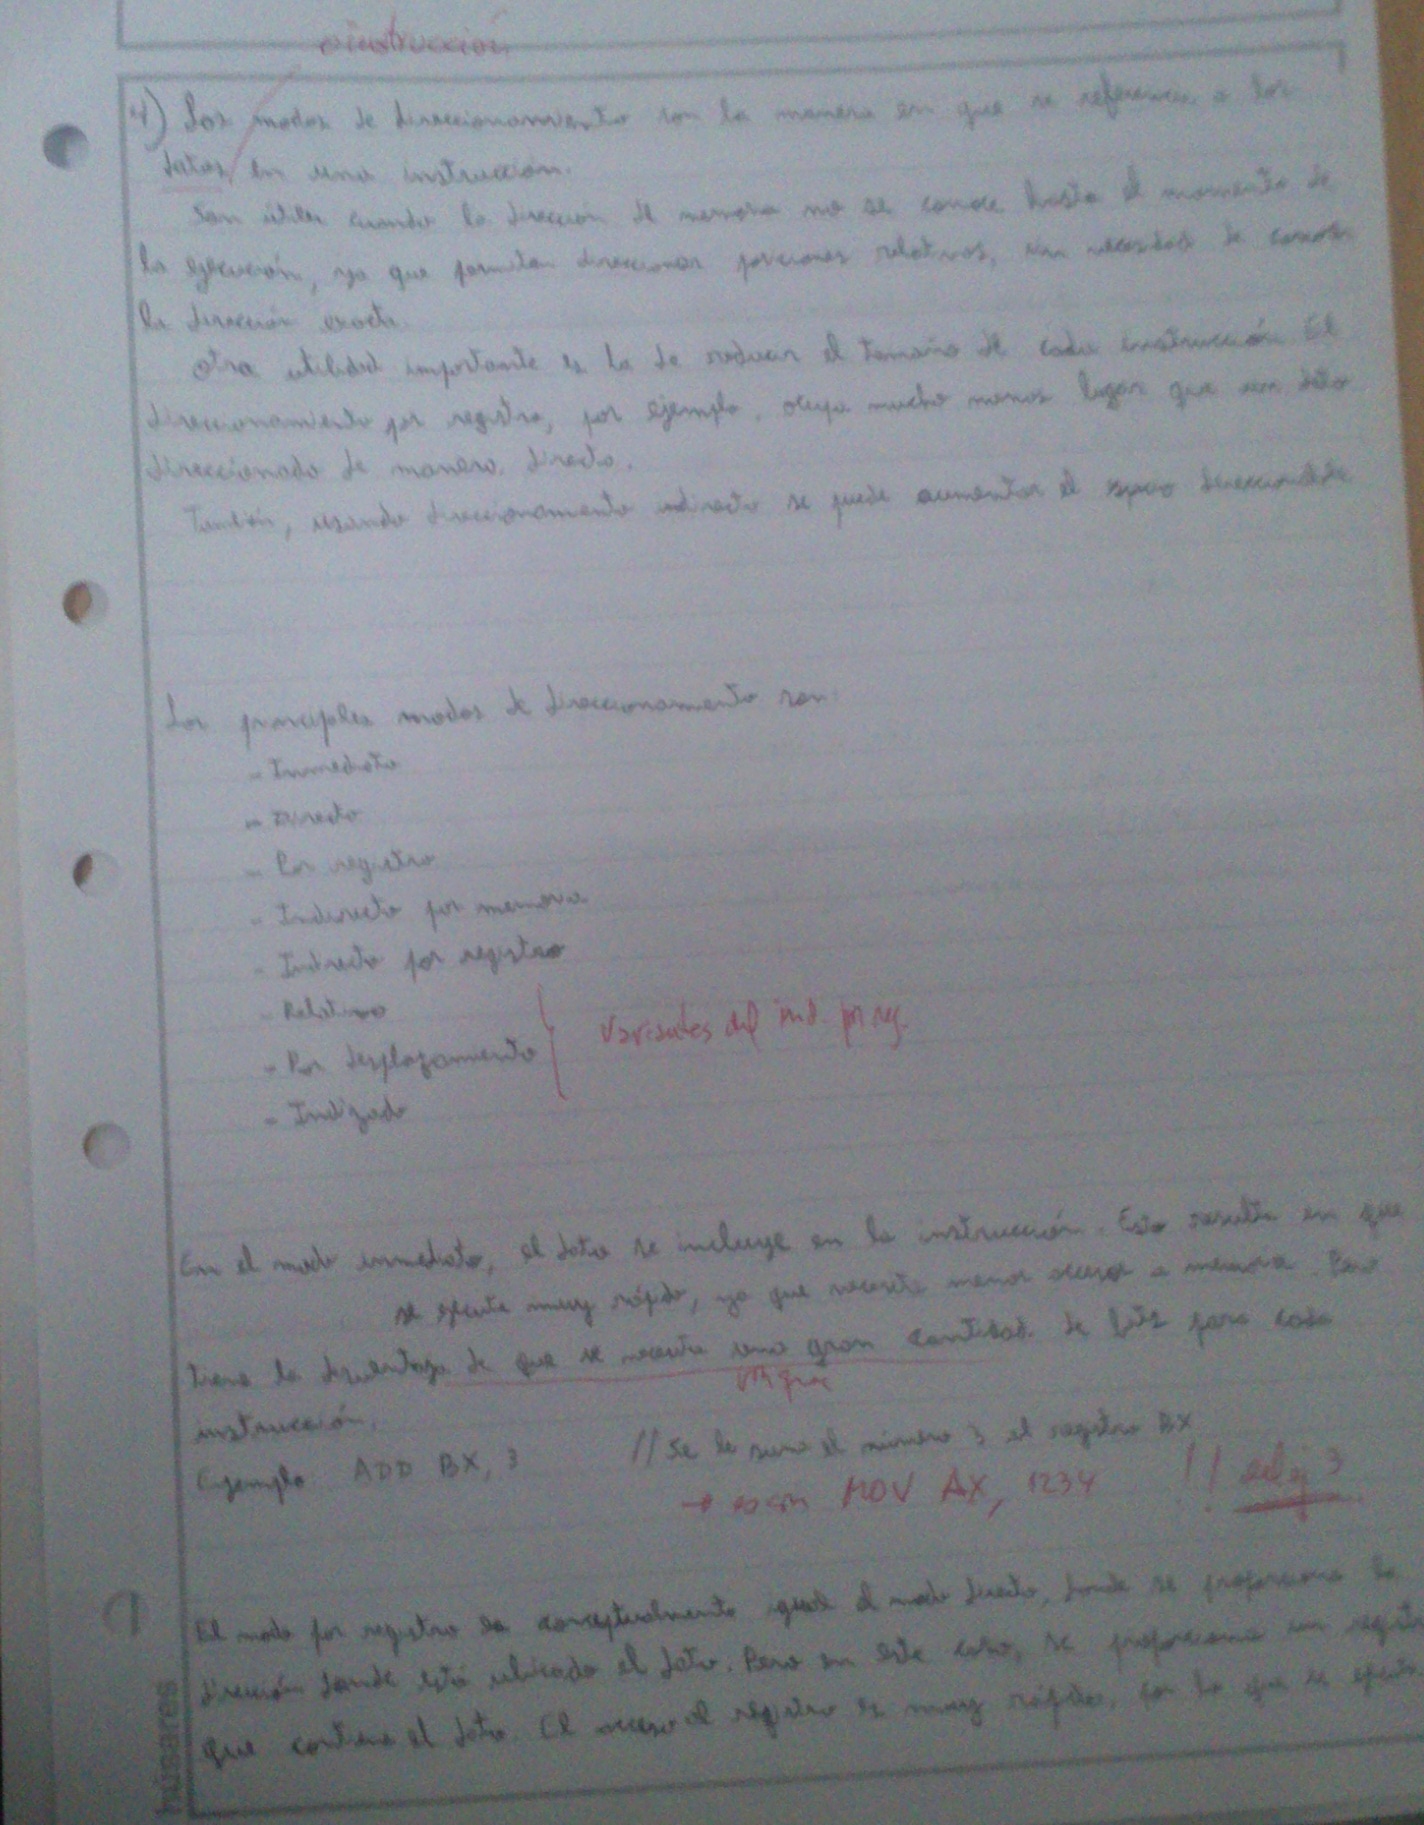 o instrucción
4) Los modos de direccionamiento son la manera en que se referencia a los
datos en una instrucción.
Son útiles cuando la dirección de memoria no se conoce hasta el momento de
la ejecución, ya que permiten direccionar posiciones relativas, sin necesidad de conocer
la dirección exacta.
Otra utilidad importante es la de reducir el tamaño de cada instrucción. El
direccionamiento por registro, por ejemplo, ocupa mucho menos lugar que un dato
direccionado de manera directa.
También, usando direccionamiento indirecto se puede aumentar el espacio direccionable
Los principales modos de direccionamiento son:
- Inmediato
- Directo
- Por registro
- Indirecto por memoria
- Indirecto por registro
- Relativo
- Por desplazamiento
variantes del ind. por reg.
- Indizado
En el modo inmediato, el dato se incluye en la instrucción. Esto resulta en que
se ejecuta muy rápido, ya que necesita menor acceso a memoria. Pero
tiene la desventaja de que se necesita una gran cantidad de bits para cada
instrucción.
Ejemplo: ADD BX, 3 // Se le suma el número 3 al registro BX
→ MOV AX, 1234 !! ej 3
El modo por registro es conceptualmente igual al modo directo, donde se proporciona la
dirección donde está ubicado el dato. Pero en este caso, se proporciona un registro
que contiene el dato. El acceso al registro es muy rápido, por lo que se ejecuta
húsares